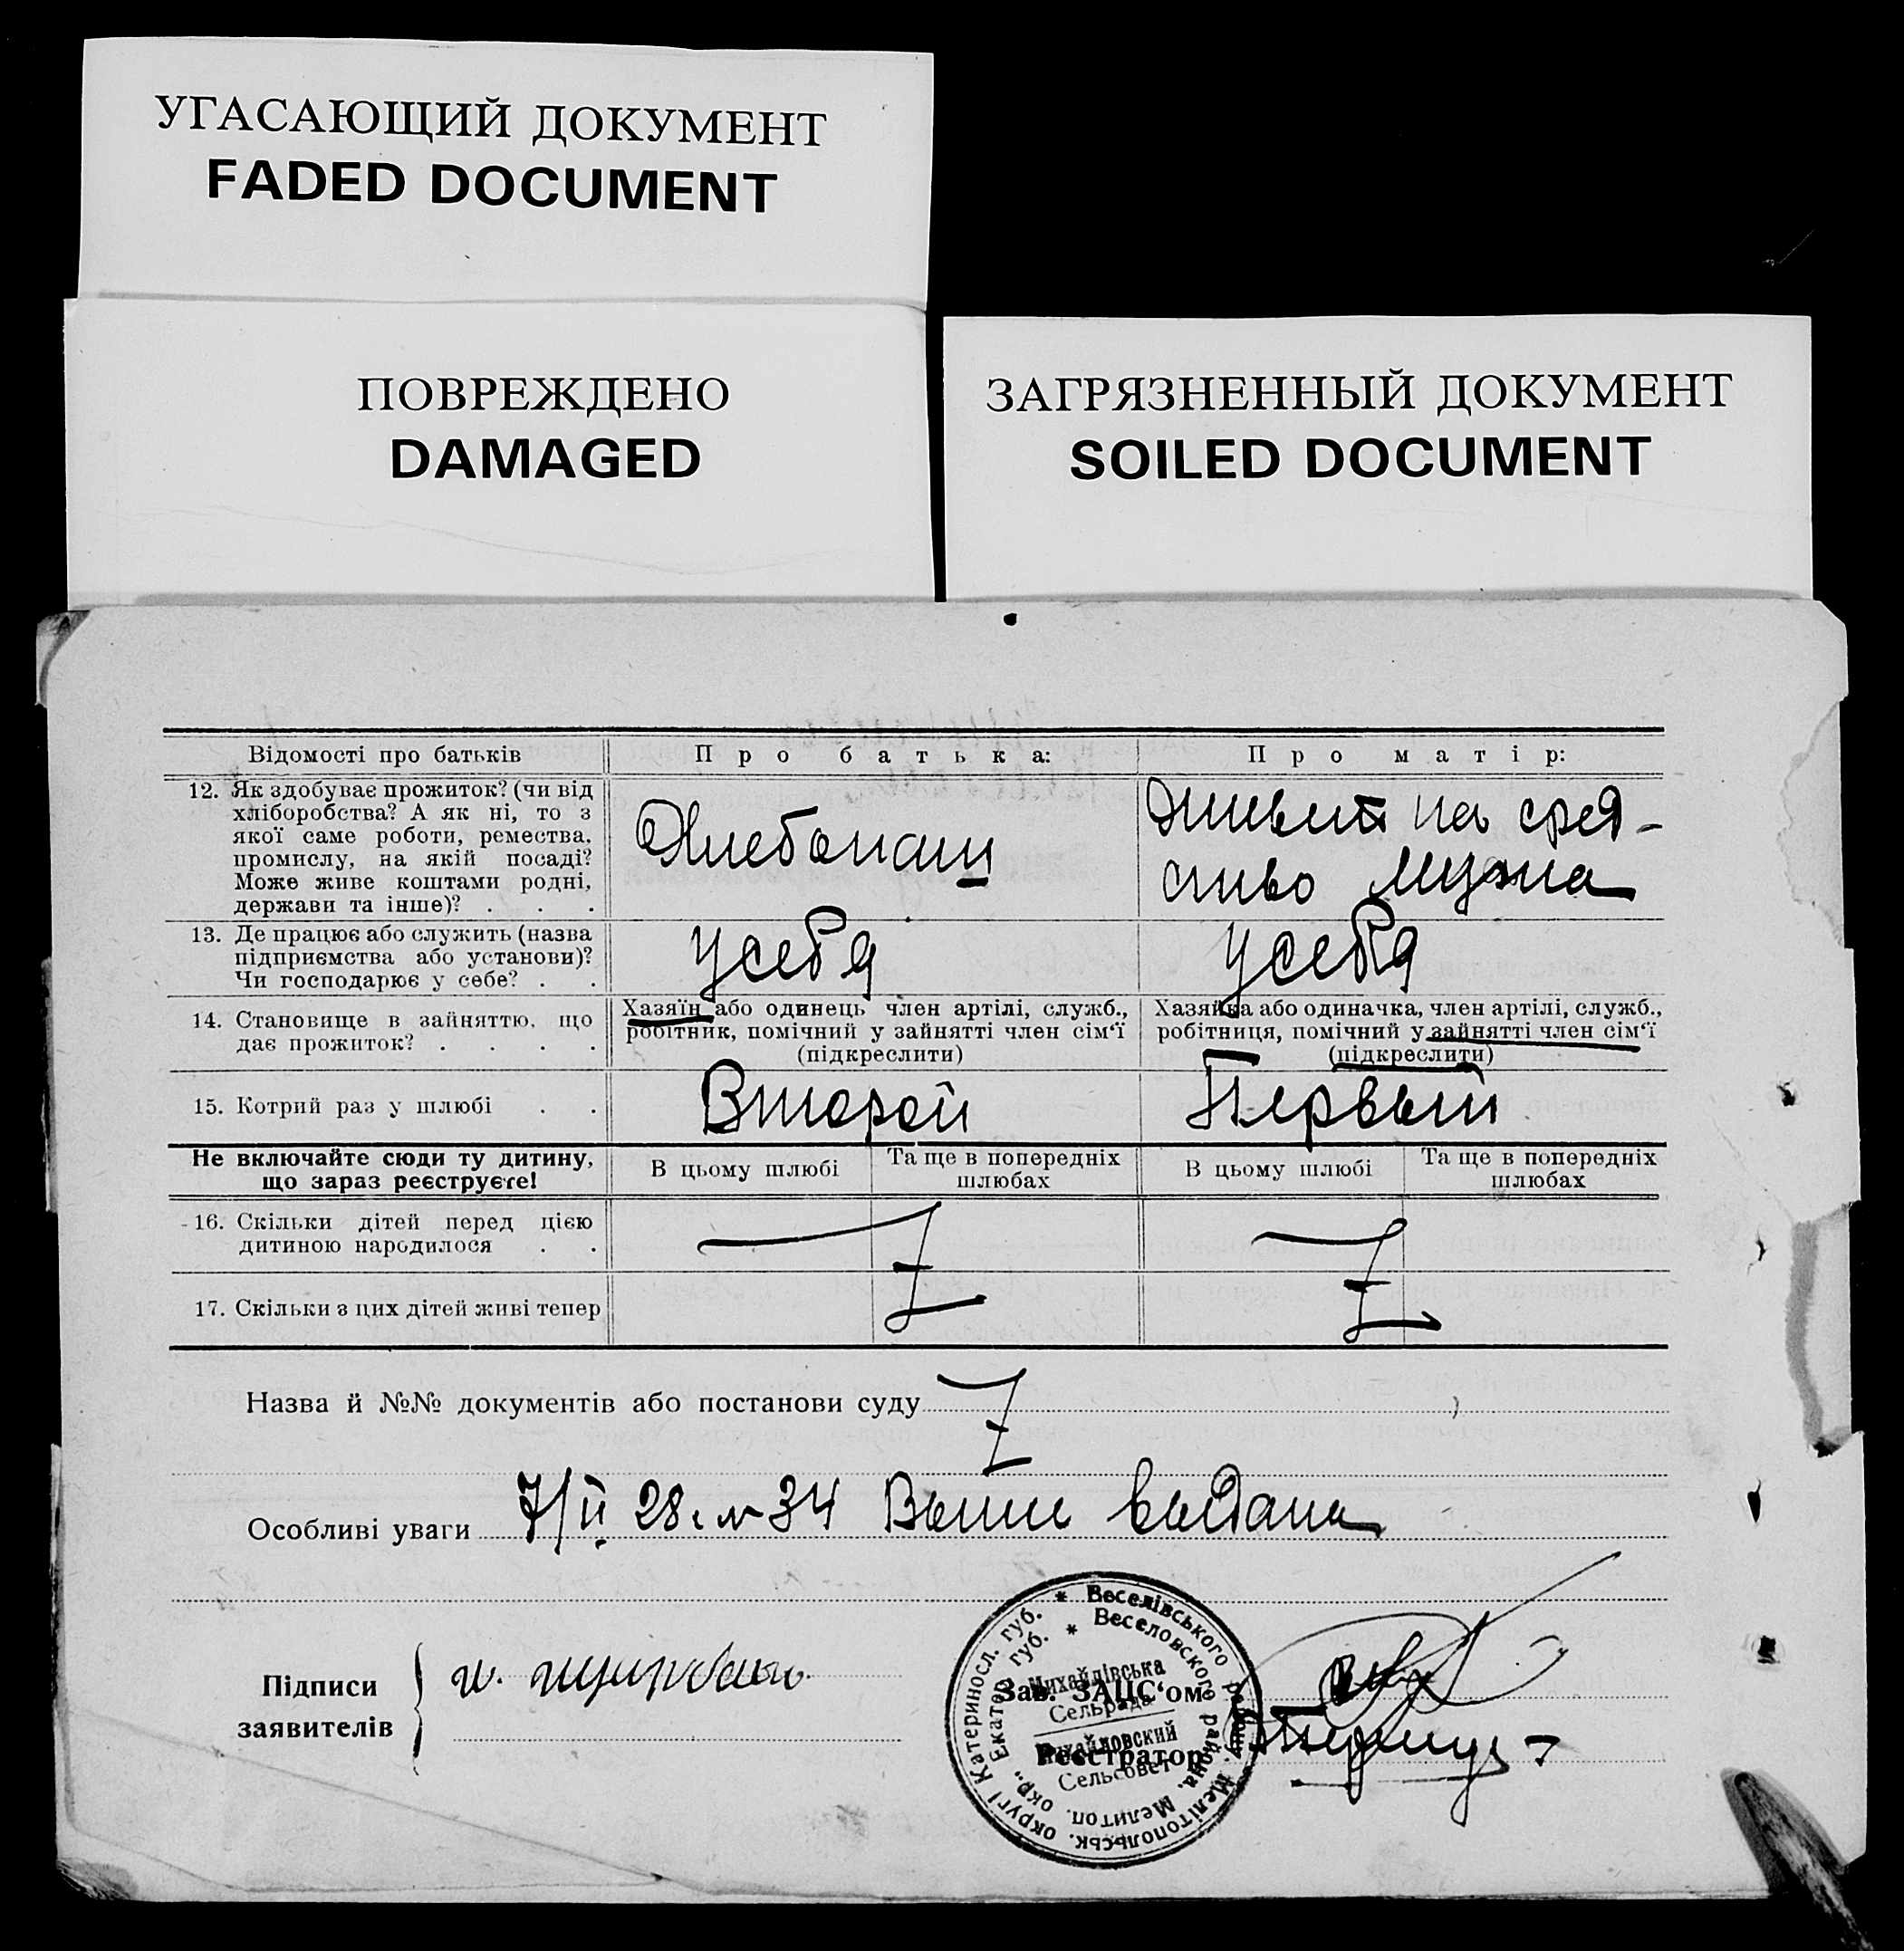 УГАСАЮЩИЙ ДОКУМЕНТ
FADED DOCUMENT
ПОВРЕЖДЕНО
DAMAGED
ЗАГРЯЗНЕННЫЙ ДОКУМЕНТ
SOILED DOCUMENT
Відомості про батьків
Про батька:
Про матір:
12. Як здобуває прожиток? (чи від
хліборобства? А як ні, то з
якої саме роботи, ремества,
промислу, на якій посаді?
Може живе коштами родні,
держави та інше)? . . .
Хлебопаш
живет на сред-
ство мужа
13. Де працює або служить (назва
підприємства або установи)?
Чи господарює у себе? . .
У себя
У себя
14. Становище в зайняттю, що
дає прожиток? . . . .
Хазяїн або одинець член артілі, служб.,
робітник, помічний у зайнятті член сім‘ї
(підкреслити)
Хазяйка або одиначка, член артілі, служб.,
робітниця, помічний у зайнятті член сім‘ї
(підкреслити)
15. Котрий раз у шлюбі . .
Второй
Первый
Не включайте сюди ту дитину,
що зараз реєструєте!
В цьому шлюбі
Та ще в попередніх
шлюбах
В цьому шлюбі
Та ще в попередніх
шлюбах
16. Скільки дітей перед цією
дитиною народилося . .
17. Скільки з цих дітей живі тепер
Назва й №№ документів або постанови суду
Особливі уваги 7/II 28 г. № 34 Выпис выдана
Підписи
заявителів
Зав. ЗАЦС‘ом
Реєстратор
* Веселівського району Мелітопольськ. округі Катеринослав. губ.
* Веселовского района, Мелитоп. окр., Екатер. губ.
Михайлівська
Сельрада
Михайловский
Сельсовет